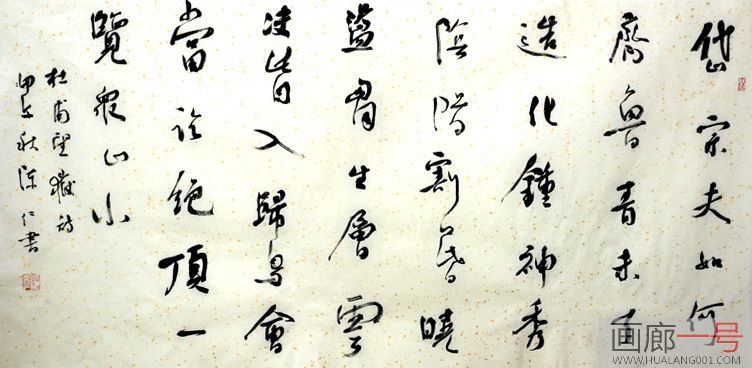 岱宗夫如何
齊魯青未
造化鍾神秀
陰陽割昏曉
盪胷生層雲
決眥入歸鳥會
當臨絕頂一
覽眾山小
杜甫望嶽詩
甲午秋陳仁書
画廊一号
WWW.HUALANG001.COM